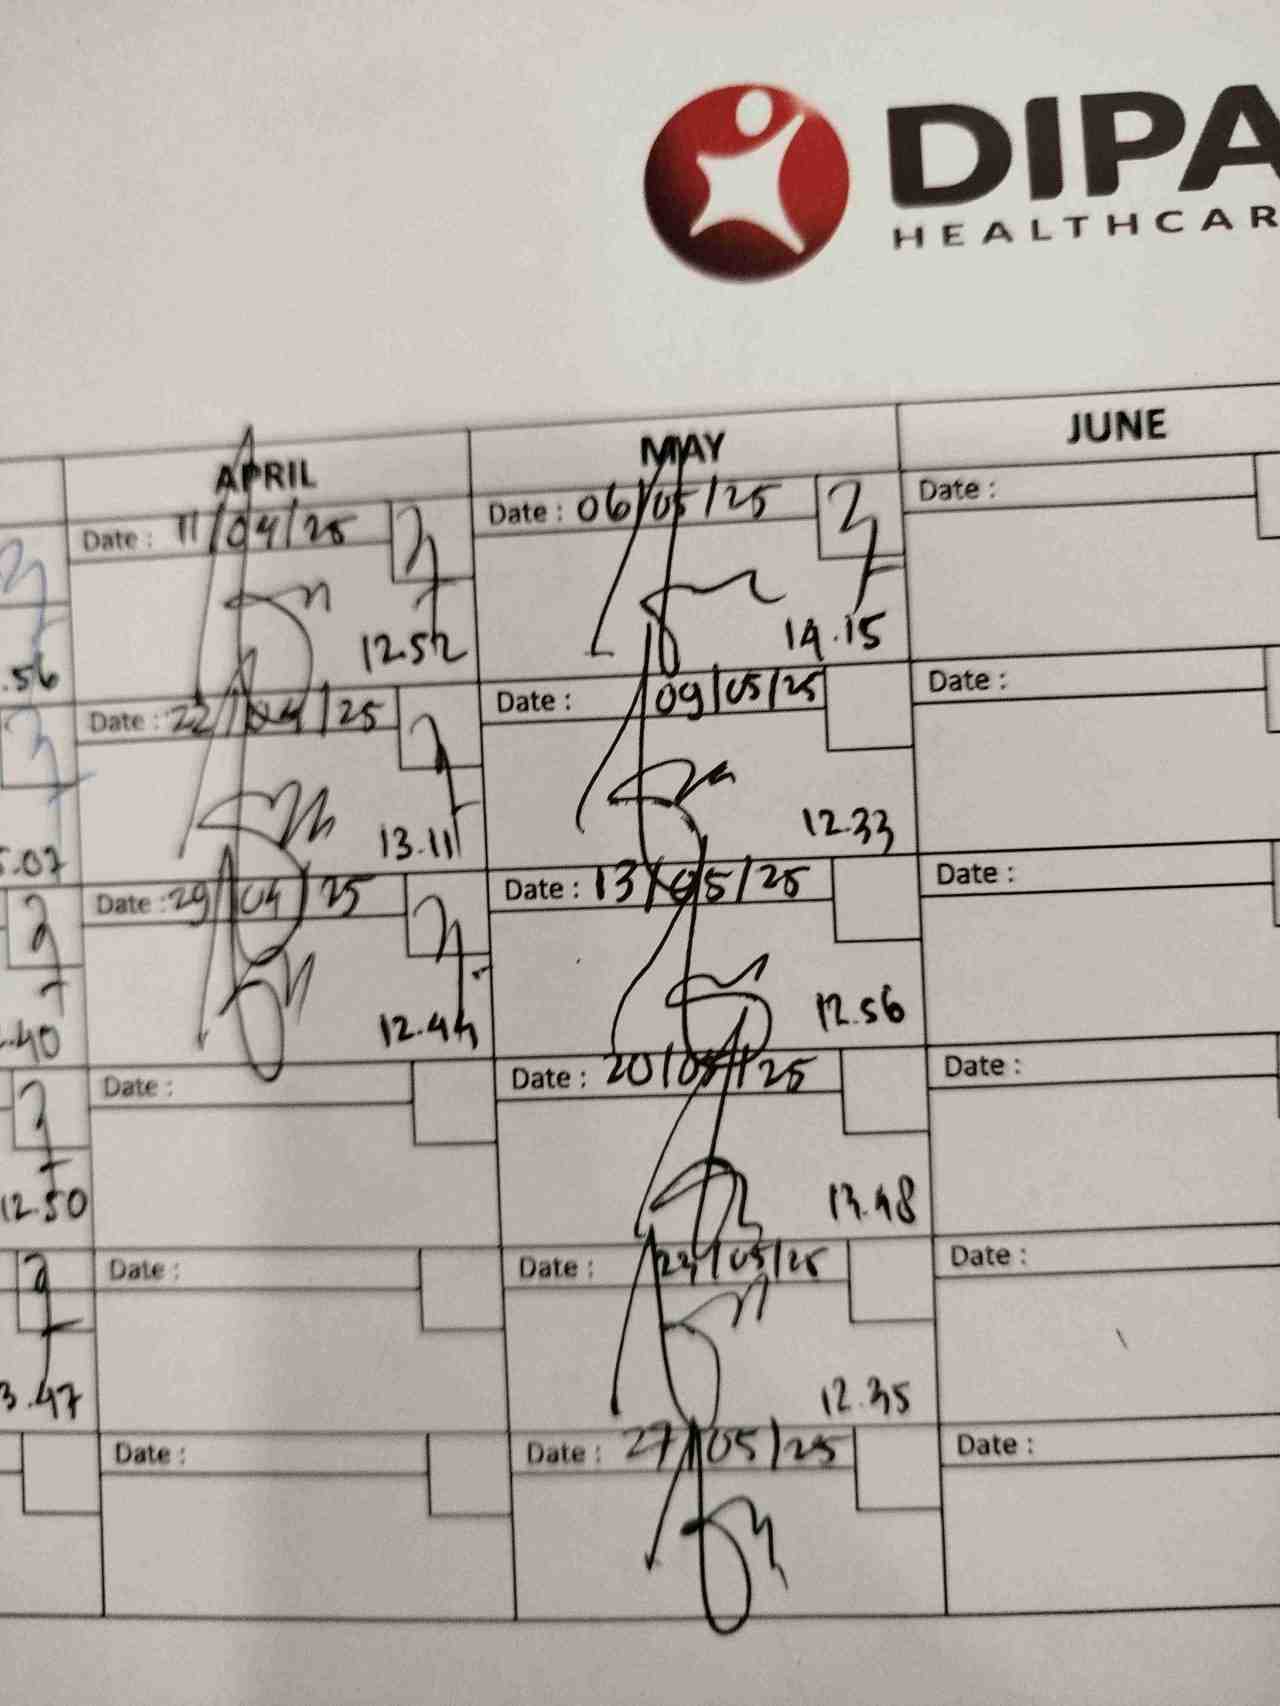 DIPA
HEALTHCAR
APRIL
MAY
JUNE
Date : 11/04/25
Date : 06/05/25
Date :
.56
12.52
14.15
Date : 22/04/25
Date : 09/05/25
Date :
.07
13.11
12.33
Date : 29/04/25
Date : 13/05/25
Date :
.40
12.44
12.56
Date :
Date : 20/05/25
Date :
12.50
13.48
Date :
Date : 22/05/25
Date :
3.47
12.35
Date :
Date : 27/05/25
Date :